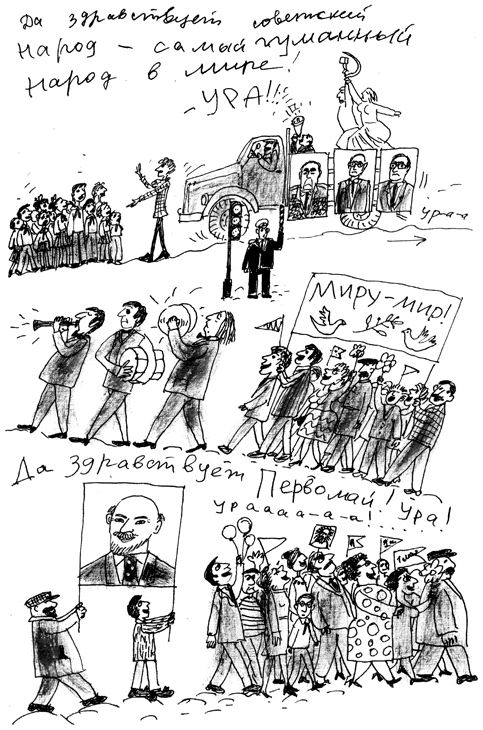 Да здравствует советский
народ – самый гуманный
народ в мире!
– УРА!!!
ур-а-а
МИРУ-МИР!
Да здравствует Первомай! Ура!
ураааа-а-а!.....
1 мая